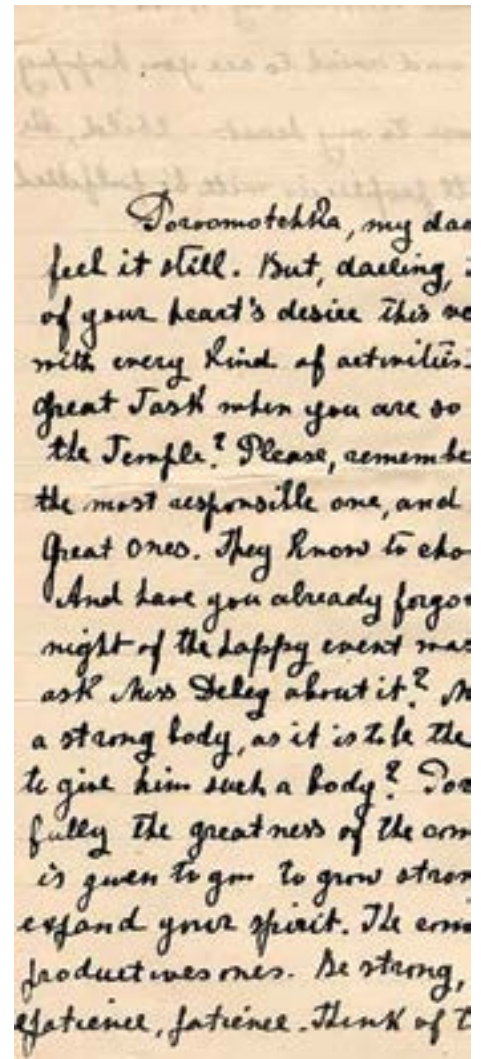 Poroomotchka, my dar
feel it still. But, darling,
of your heart's desire this
with every kind of activities.
Great Task when you are so
the Temple? Please, remembe
the most responsible one, and
Great Ones. They know to cho
And have you already forgo
night of the happy event was
ask Miss Deleg about it?
a strong body, as it is to be the
to give him such a body? Por
fully the greatness of the com
is given to you to grow stron
expand your spirit. The com
productives ones. Be strong,
patience, patience. Think of t